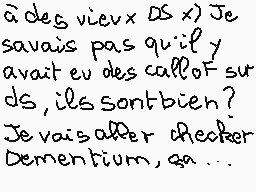 à des vieux DS x) Je
savais pas qu'il y
avait eu des callof sur
ds, ils sont bien?
Je vais aller checker
Dementium, sa ...